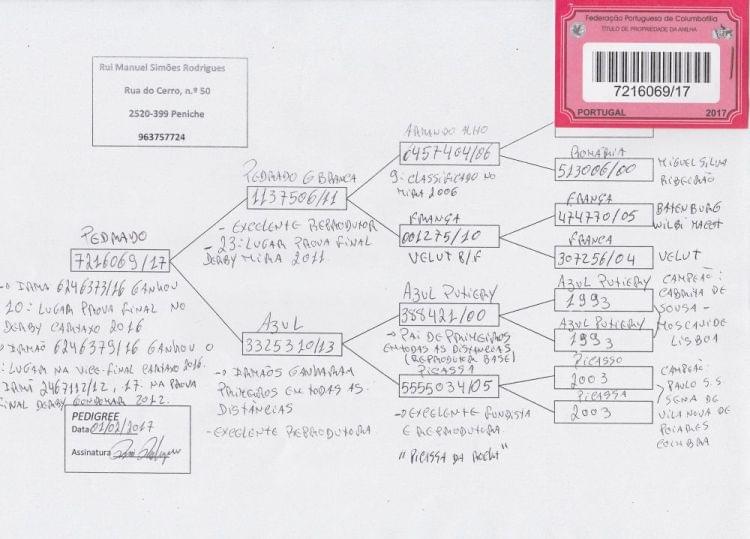 Federação Portuguesa de Columbofilia
TÍTULO DE PROPRIEDADE DA ANILHA
7216069/17
PORTUGAL 2017
Rui Manuel Simões Rodrigues
Rua do Cerro, n.º 50
2520-399 Peniche
963757724
PEDRADO
7216069/17
IRMÃ 6246373/16 GANHOU
10º LUGAR PROVA FINAL NO
DERBY CARTAXO 2016
IRMÃO 6246379/16 GANHOU O
LUGAR NA VICE-FINAL CARTAXO 2016.
IRMÃ 2467112/12, 17. NA PROVA
FINAL DERBY GONDOMAR 2012.
PEDIGREE
Data 01/02/2017
Assinatura
PEDRADO G BRANCA
1137506/11
- EXCELENTE REPRODUTOR
- 23º LUGAR PROVA FINAL
DERBY MIRA 2011.
AZUL
3325310/13
→ IRMÃOS GANHARAM
PRIMEIROS EM TODAS AS
DISTÂNCIAS
- EXCELENTE REPRODUTORA
6457404/06
9º CLASSIFICADO NO
MIRA 2006
FRANÇA
001275/10
VELUT B/F
AZUL PUTIERY
388421/00
→ PAI DE PRIMEIROS
EM TODAS AS DISTÂNCIAS
(REPRODUTOR BASE)
PICASSA
5555034/05
- EXCELENTE FUNDISTA
E REPRODUTORA
"PICASSA DA
ROMÁRIA
513006/00
MIGUEL SILVA
RIBEIRÃO
FRANÇA
474770/05
BATENBURG
FRANCA
307256/04
VELUT
AZUL PUTIERY
1993
AZUL PUTIERY
1993
CAMPEÃO:
CABRITA DE
SOUSA -
MOSCAVIDE
LISBOA
PICASSO
2003
PICASSA
2003
CAMPEÃO:
PAULO S.S.
SENA DE
VILA NOVA DE
POIARES
COIMBRA